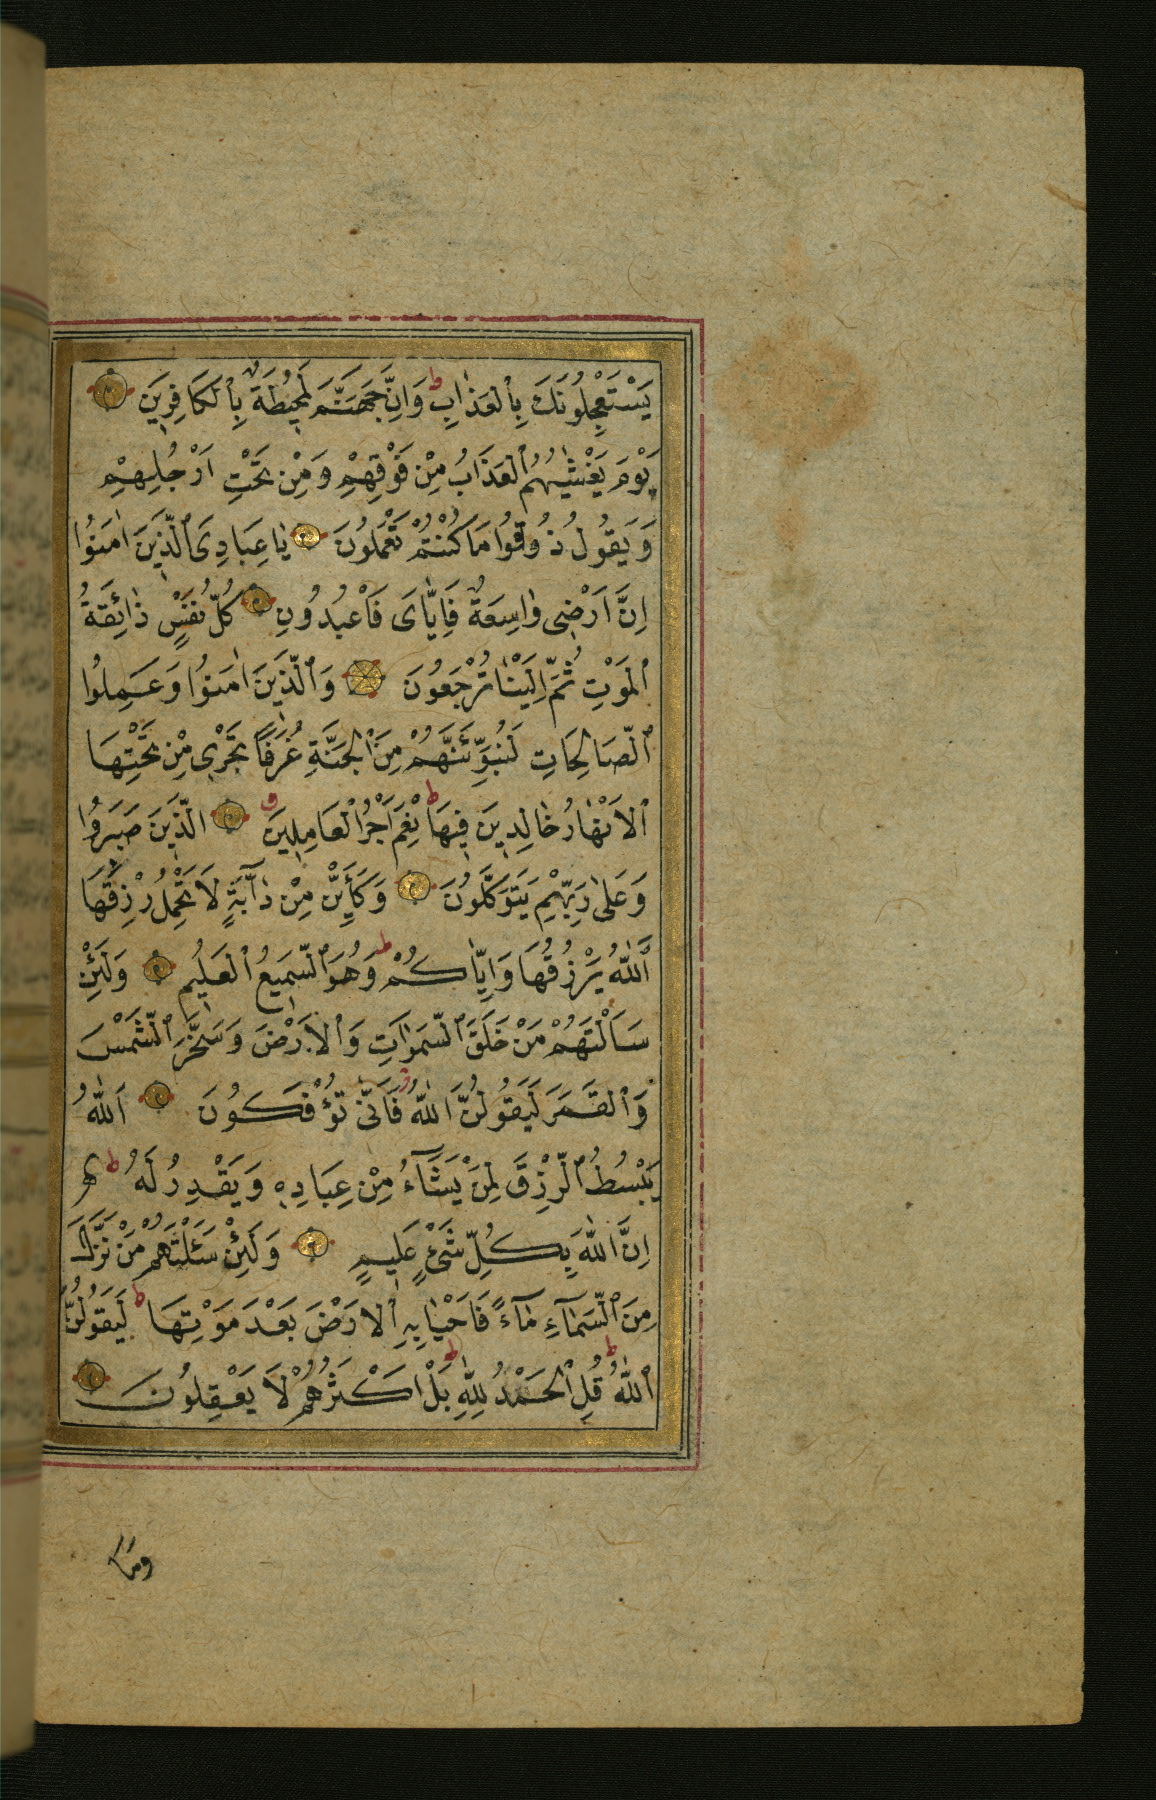 يَسْتَعْجِلُونَكَ بِالْعَذَابِ ط وَاِنَّ جَهَنَّمَ لَمُحِيطَةٌ بِالْكَافِرِينَ
يَوْمَ يَغْشٰيهُمُ الْعَذَابُ مِنْ فَوْقِهِمْ وَمِنْ تَحْتِ اَرْجُلِهِمْ
وَيَقُولُ ذُوقُوا مَا كُنْتُمْ تَعْمَلُونَ يَا عِبَادِىَ الَّذِينَ اٰمَنُوا
اِنَّ اَرْضِى وَاسِعَةٌ فَاِيَّاىَ فَاعْبُدُونِ كُلُّ نَفْسٍ ذَائِقَةُ
الْمَوْتِ ثُمَّ اِلَيْنَا تُرْجَعُونَ وَالَّذِينَ اٰمَنُوا وَعَمِلُوا
الصَّالِحَاتِ لَنُبَوِّئَنَّهُمْ مِنَ الْجَنَّةِ غُرَفًا تَجْرِى مِنْ تَحْتِهَا
الْاَنْهَارُ خَالِدِينَ فِيهَا ط نِعْمَ اَجْرُ الْعَامِلِينَ ق الَّذِينَ صَبَرُوا
وَعَلٰى رَبِّهِمْ يَتَوَكَّلُونَ وَكَأَيِّنْ مِنْ دَآبَّةٍ لَا تَحْمِلُ رِزْقَهَا
اَللّٰهُ يَرْزُقُهَا وَاِيَّاكُمْ ط وَهُوَ السَّمِيعُ الْعَلِيمُ وَلَئِنْ
سَاَلْتَهُمْ مَنْ خَلَقَ السَّمٰوَاتِ وَالْاَرْضَ وَسَخَّرَ الشَّمْسَ
وَالْقَمَرَ لَيَقُولُنَّ اللّٰهُ فَاَنّٰى تُؤْفَكُونَ اَللّٰهُ
يَبْسُطُ الرِّزْقَ لِمَنْ يَشَآءُ مِنْ عِبَادِهِ وَيَقْدِرُ لَهُ ط
اِنَّ اللّٰهَ بِكُلِّ شَىْءٍ عَلِيمٍ وَلَئِنْ سَئَلْتَهُمْ مَنْ نَزَّلَ
مِنَ السَّمَآءِ مَآءً فَاَحْيَا بِهِ الْاَرْضَ بَعْدَ مَوْتِهَا ط لَيَقُولُنَّ
اللّٰهُ ط قُلِ الْحَمْدُ لِلّٰهِ ط بَلْ اَكْثَرُهُمْ لَا يَعْقِلُونَ
وما